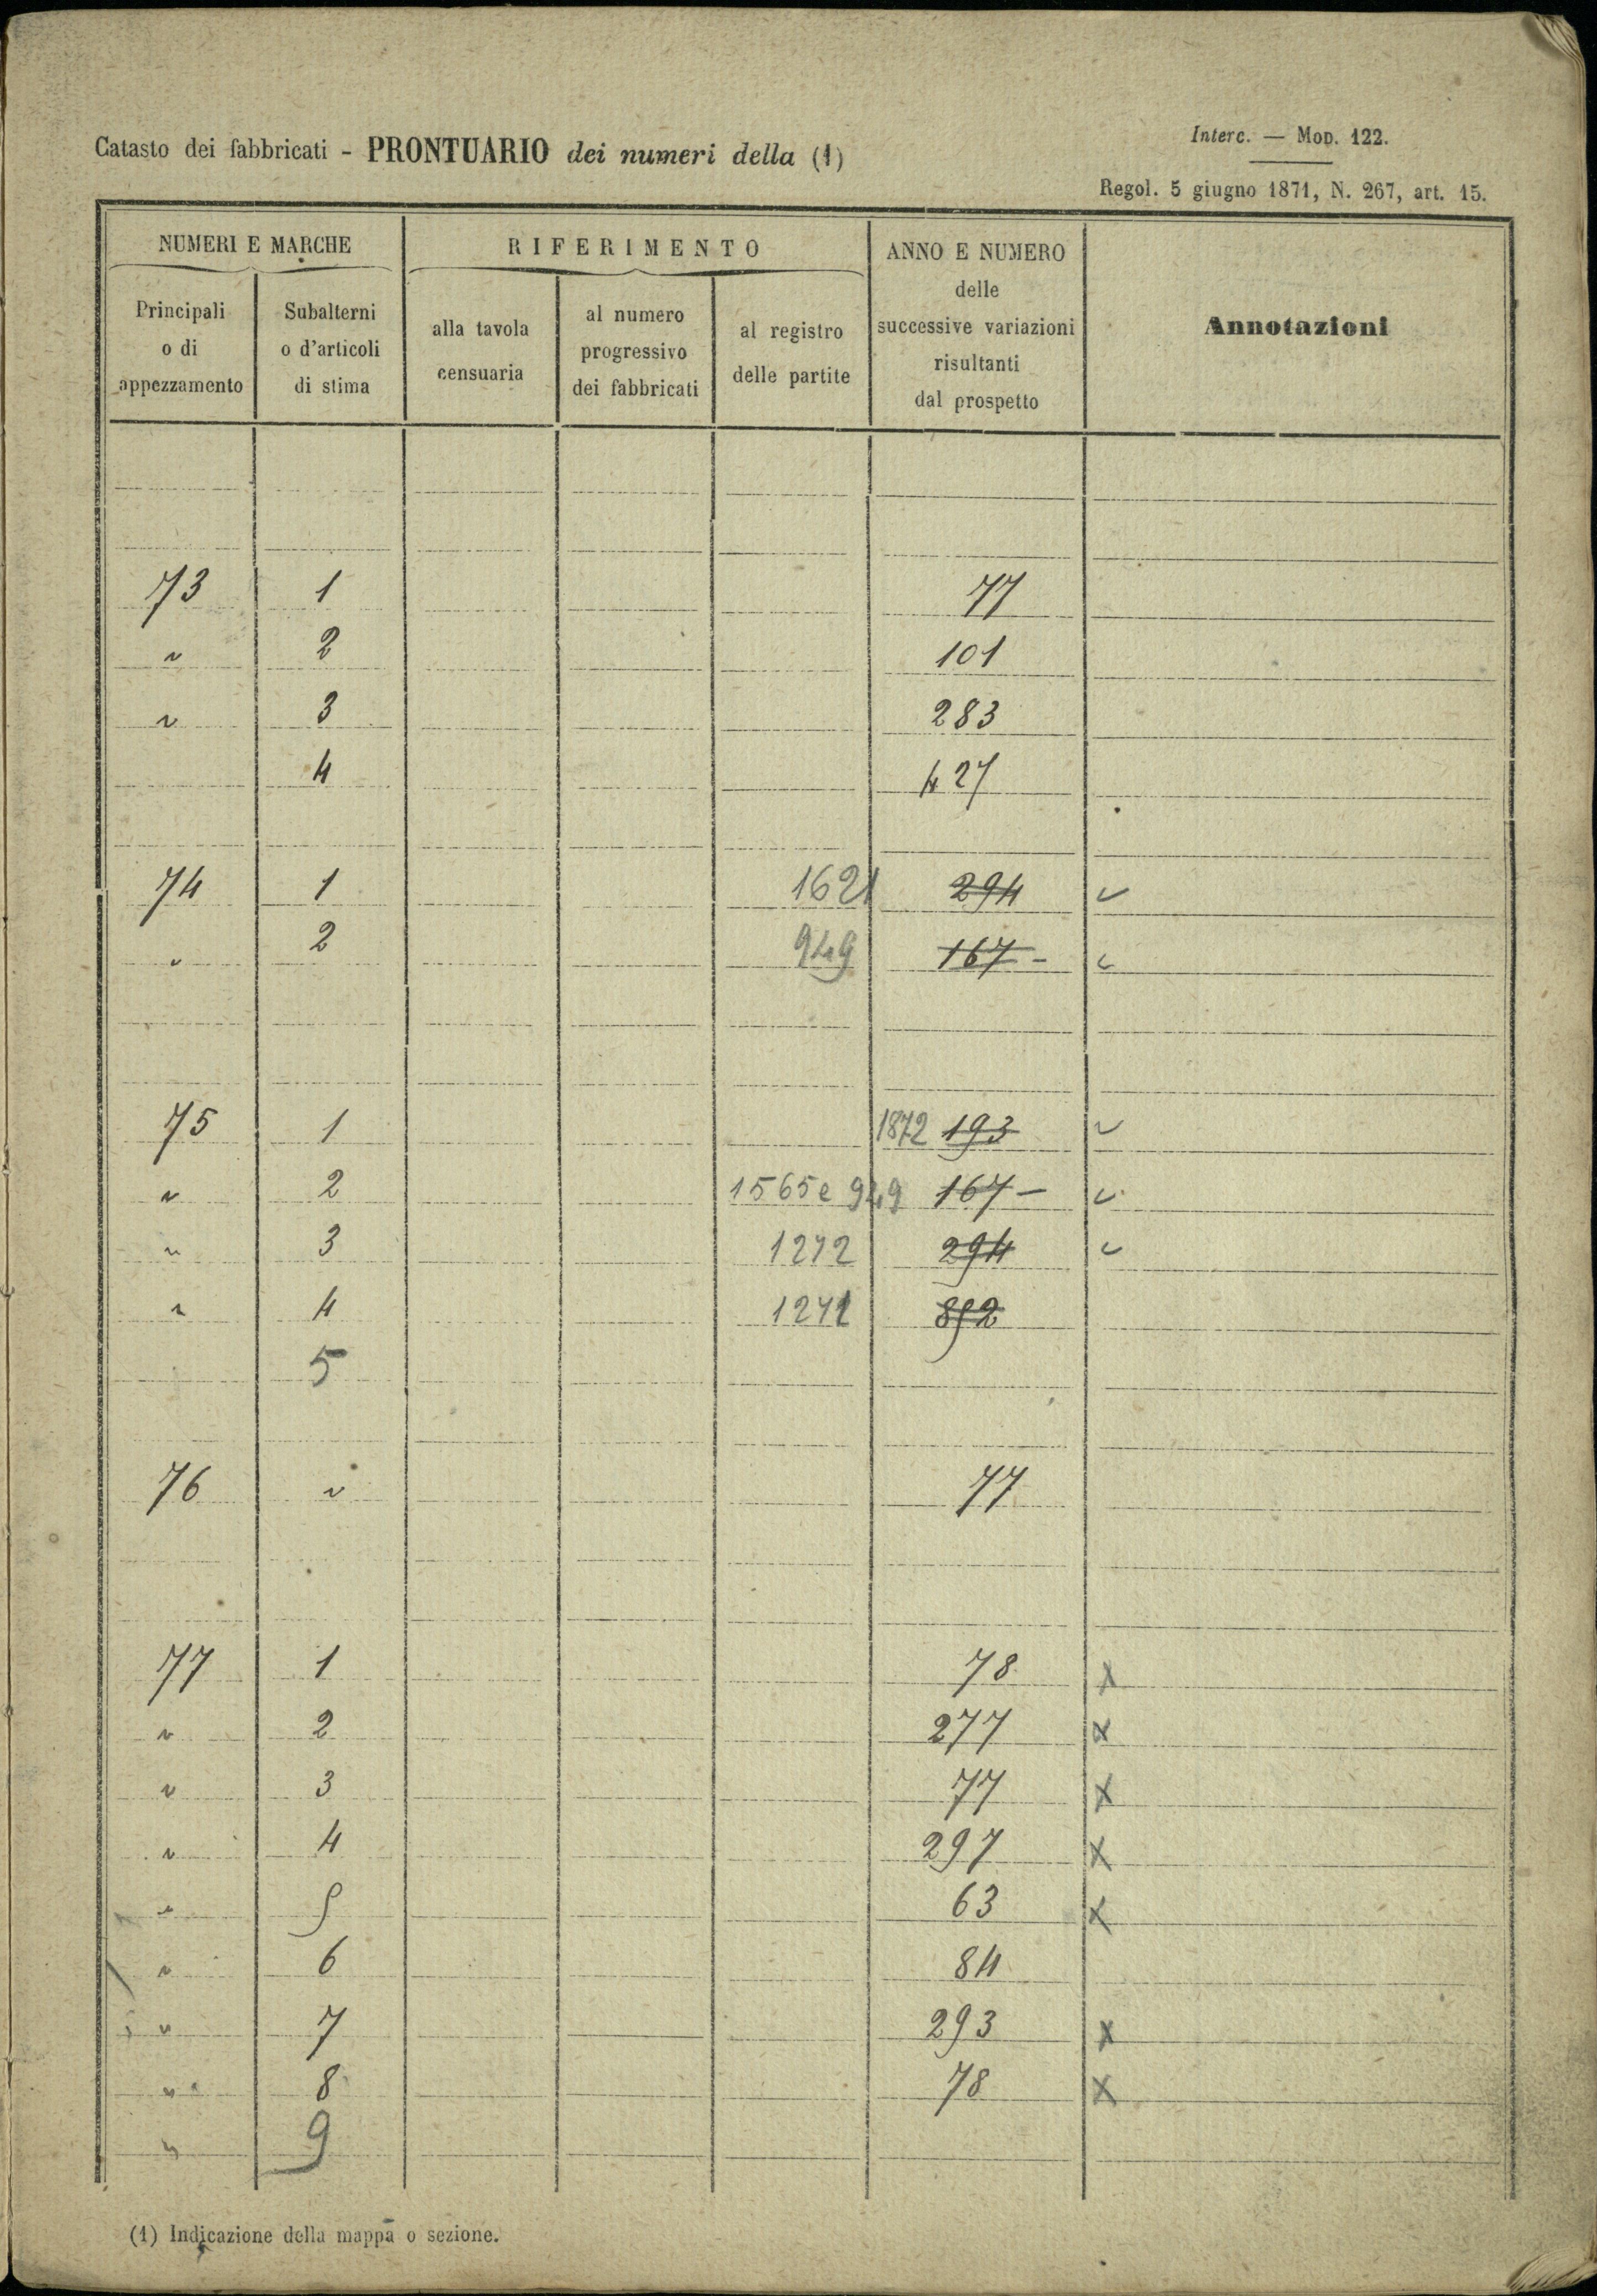 Catasto dei fabbricati - PRONTUARIO dei numeri della (1)
Interc. — Mod. 122.
Regol. 5 giugno 1871, N. 267, art. 15.
NUMERI E MARCHE
RIFERIMENTO
ANNO E NUMERO
delle
successive variazioni
risultanti
dal prospetto
Annotazioni
Principali
o di
appezzamento
Subalterni
o d'articoli
di stima
alla tavola
censuaria
al numero
progressivo
dei fabbricati
al registro
delle partite
73 1 77
" 2 101
" 3 283
4 427
74 1 1621 294 ✓
" 2 949 167 - ✓
75 1 1872 193 ✓
" 2 1565 e 949 167 - ✓
" 3 1272 294 ✓
" 4 1271 852
5
76 " 77
77 1 78 x
" 2 277 x
" 3 77 x
" 4 297 x
" 5 63 x
" 6 84
" 7 293 x
" 8 78 x
" 9
(1) Indicazione della mappa o sezione.